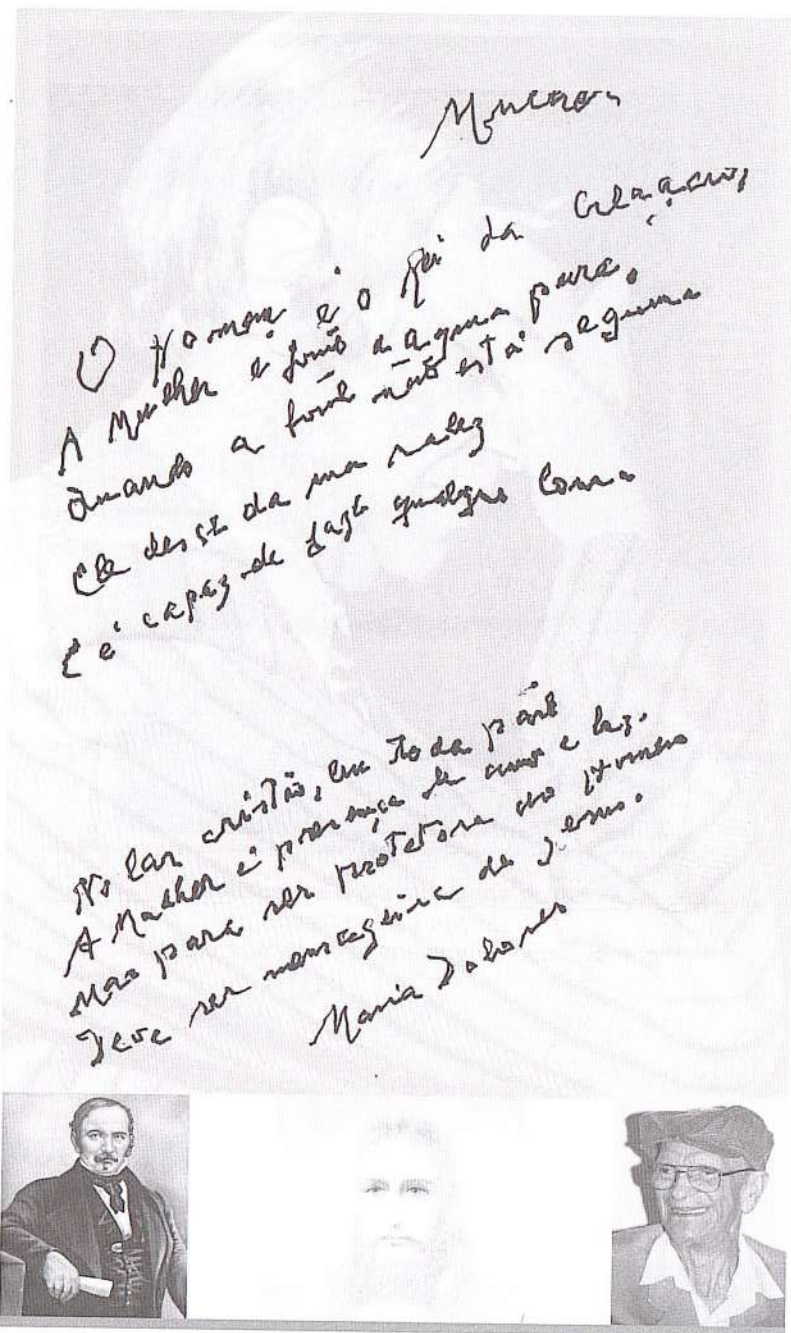 O Homem é o Rei da Criação,
A Mulher é fonte de água pura,
Quando a fonte não está segura
Ele desce da sua
E é capaz de fazer qualquer

No lar cristão, em toda parte
A Mulher é presença de amor e luz.
Mas para ser protetora do Homem
Deve ser mensageira de Jesus.
Maria Dolores